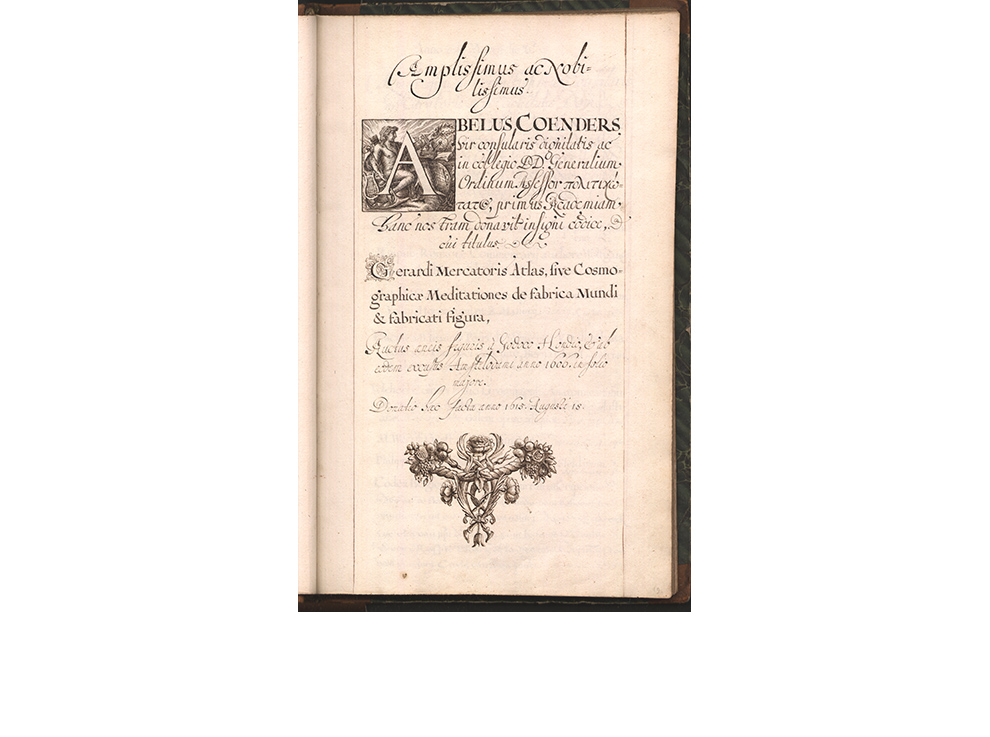 Amplissimus ac Nobi-
lissimus
ABELUS COENDERS
vir consularis dignitatis ac
in collegio DD. Generalium
Ordinum Assessor πολιτικό-
τατος, primus Academiam
hanc nostram donavit insigni codice,
cui titulus.
Gerardi Mercatoris Atlas, sive Cosmo-
graphicæ Meditationes de fabrica Mundi
& fabricati figura,
Auctus ancis a Iodoco Hondio, & ab
eodem excussus Amstelodami anno 1606. in folio
majore.
Donatio hæc facta anno 1615. Augusti 18.